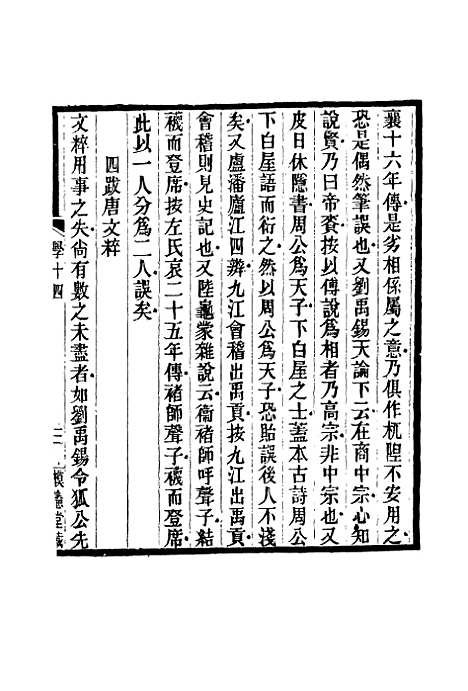 襄十六年傳是劣相係屬之意乃俱作杌隉不安用之
恐是偶然筆誤也又劉禹錫天論下云在商中宗心知
說賢乃曰帝賚按以傅說爲相者乃高宗非中宗也又
皮日休隱書周公爲天子下白屋之士蓋本古詩周公
下白屋語而衍之然以周公爲天子恐貽誤後人不淺
矣又盧潘廬江四辨九江會稽出禹貢按九江出禹貢
會稽則見史記也又陸龜蒙雜說云衞褚師呼聲子結
襪而登席按左氏哀二十五年傳褚師聲子襪而登席
此以一人分爲二人誤矣
四跋唐文粹
文粹用事之失尙有數之未盡者如劉禹錫令狐公先
學十四
二
慎德堂藏